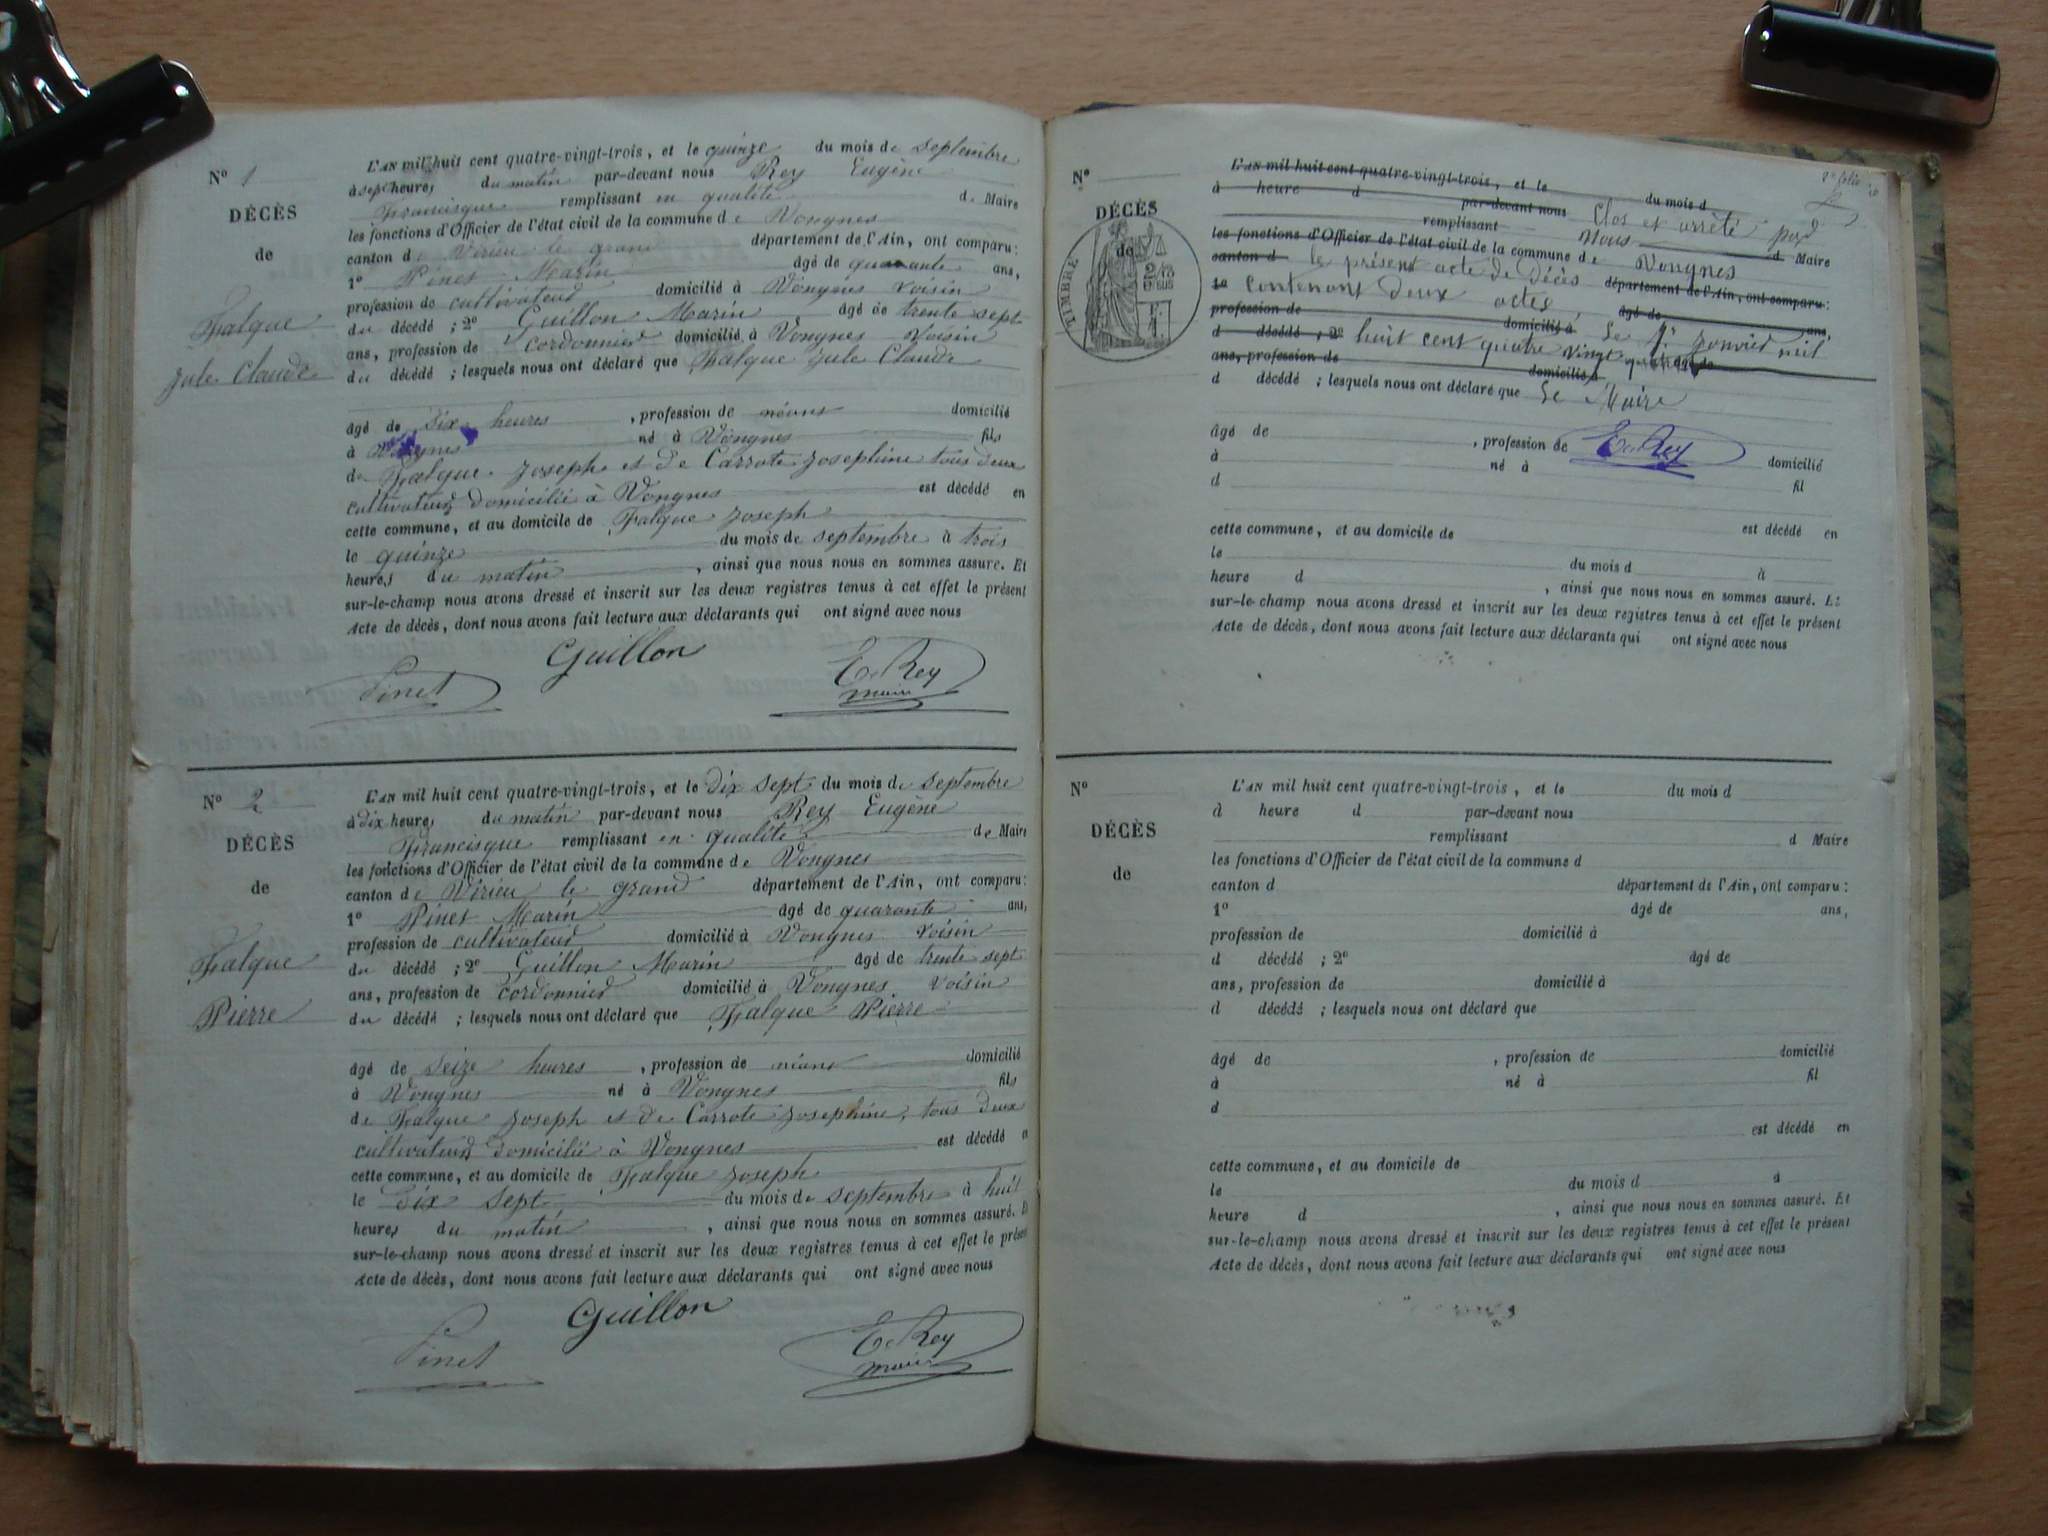 N° 1
DÉCÈS
de
Falque
Jule Claude
L'AN mil huit cent quatre-vingt-trois, et le quinze du mois de septembre
à sept heures du matin par-devant nous Rey Eugène
Francisque remplissant en qualité de Maire
les fonctions d'Officier de l'état civil de la commune de Vongnes
canton de Virieu le grand département de l'Ain, ont comparu :
1° Pinet Marin âgé de quarante ans,
profession de cultivateur domicilié à Vongnes voisin
du décédé ; 2° Guillon Marin âgé de trente sept
ans, profession de cordonnier domicilié à Vongnes voisin
du décédé ; lesquels nous ont déclaré que Falque Jule Claude
âgé de six heures , profession de néant domicilié
à Vongnes né à Vongnes fils
de Falque Joseph et de Carrote Josephine tous deux
cultivateurs domicilié à Vongnes est décédé en
cette commune, et au domicile de Falque Joseph
le quinze du mois de septembre à trois
heures du matin , ainsi que nous nous en sommes assuré. Et
sur-le-champ nous avons dressé et inscrit sur les deux registres tenus à cet effet le présent
Acte de décès, dont nous avons fait lecture aux déclarants qui ont signé avec nous
Pinet Guillon E. Rey
maire
N° 2
DÉCÈS
de
Falque
Pierre
L'AN mil huit cent quatre-vingt-trois, et le dix sept du mois de septembre
à dix heures du matin par-devant nous Rey Eugène
Francisque remplissant en qualité de Maire
les fonctions d'Officier de l'état civil de la commune de Vongnes
canton de Virieu le grand département de l'Ain, ont comparu :
1° Pinet Marin âgé de quarante ans,
profession de cultivateur domicilié à Vongnes voisin
du décédé ; 2° Guillon Marin âgé de trente sept
ans, profession de cordonnier domicilié à Vongnes voisin
du décédé ; lesquels nous ont déclaré que Falque Pierre
âgé de seize heures , profession de néant domicilié
à Vongnes né à Vongnes fils
de Falque Joseph et de Carrote Josephine, tous deux
cultivateurs domicilié à Vongnes est décédé en
cette commune, et au domicile de Falque Joseph
le dix sept du mois de septembre à huit
heures du matin , ainsi que nous nous en sommes assuré. Et
sur-le-champ nous avons dressé et inscrit sur les deux registres tenus à cet effet le présent
Acte de décès, dont nous avons fait lecture aux déclarants qui ont signé avec nous
Pinet Guillon E. Rey
maire
2e folio
N°
DÉCÈS
de
TIMBRE
L'AN mil huit cent quatre-vingt-trois, et le du mois d
à heure d par-devant nous Clos et arrêté par
remplissant Nous d Maire
les fonctions d'Officier de l'état civil de la commune de Vongnes
canton d le présent acte de Décès département de l'Ain, ont comparu :
1° Contenant deux actes âgé de ans,
profession de domicilié à Le 1er Janvier mil
d décédé ; 2° huit cent quatre vingt quatre âgé de
ans, profession de domicilié à
d décédé ; lesquels nous ont déclaré que Le Maire
âgé de , profession de E. Rey domicilié
à né à fil
d
est décédé en
cette commune, et au domicile de
le du mois d à
heure d , ainsi que nous nous en sommes assuré. Et
sur-le-champ nous avons dressé et inscrit sur les deux registres tenus à cet effet le présent
Acte de décès, dont nous avons fait lecture aux déclarants qui ont signé avec nous
N°
DÉCÈS
de
L'AN mil huit cent quatre-vingt-trois, et le du mois d
à heure d par-devant nous
remplissant d Maire
les fonctions d'Officier de l'état civil de la commune d
canton d département de l'Ain, ont comparu :
1° âgé de ans,
profession de domicilié à
d décédé ; 2° âgé de
ans, profession de domicilié à
d décédé ; lesquels nous ont déclaré que
âgé de , profession de domicilié
à né à fil
d
est décédé en
cette commune, et au domicile de
le du mois d à
heure d , ainsi que nous nous en sommes assuré. Et
sur-le-champ nous avons dressé et inscrit sur les deux registres tenus à cet effet le présent
Acte de décès, dont nous avons fait lecture aux déclarants qui ont signé avec nous